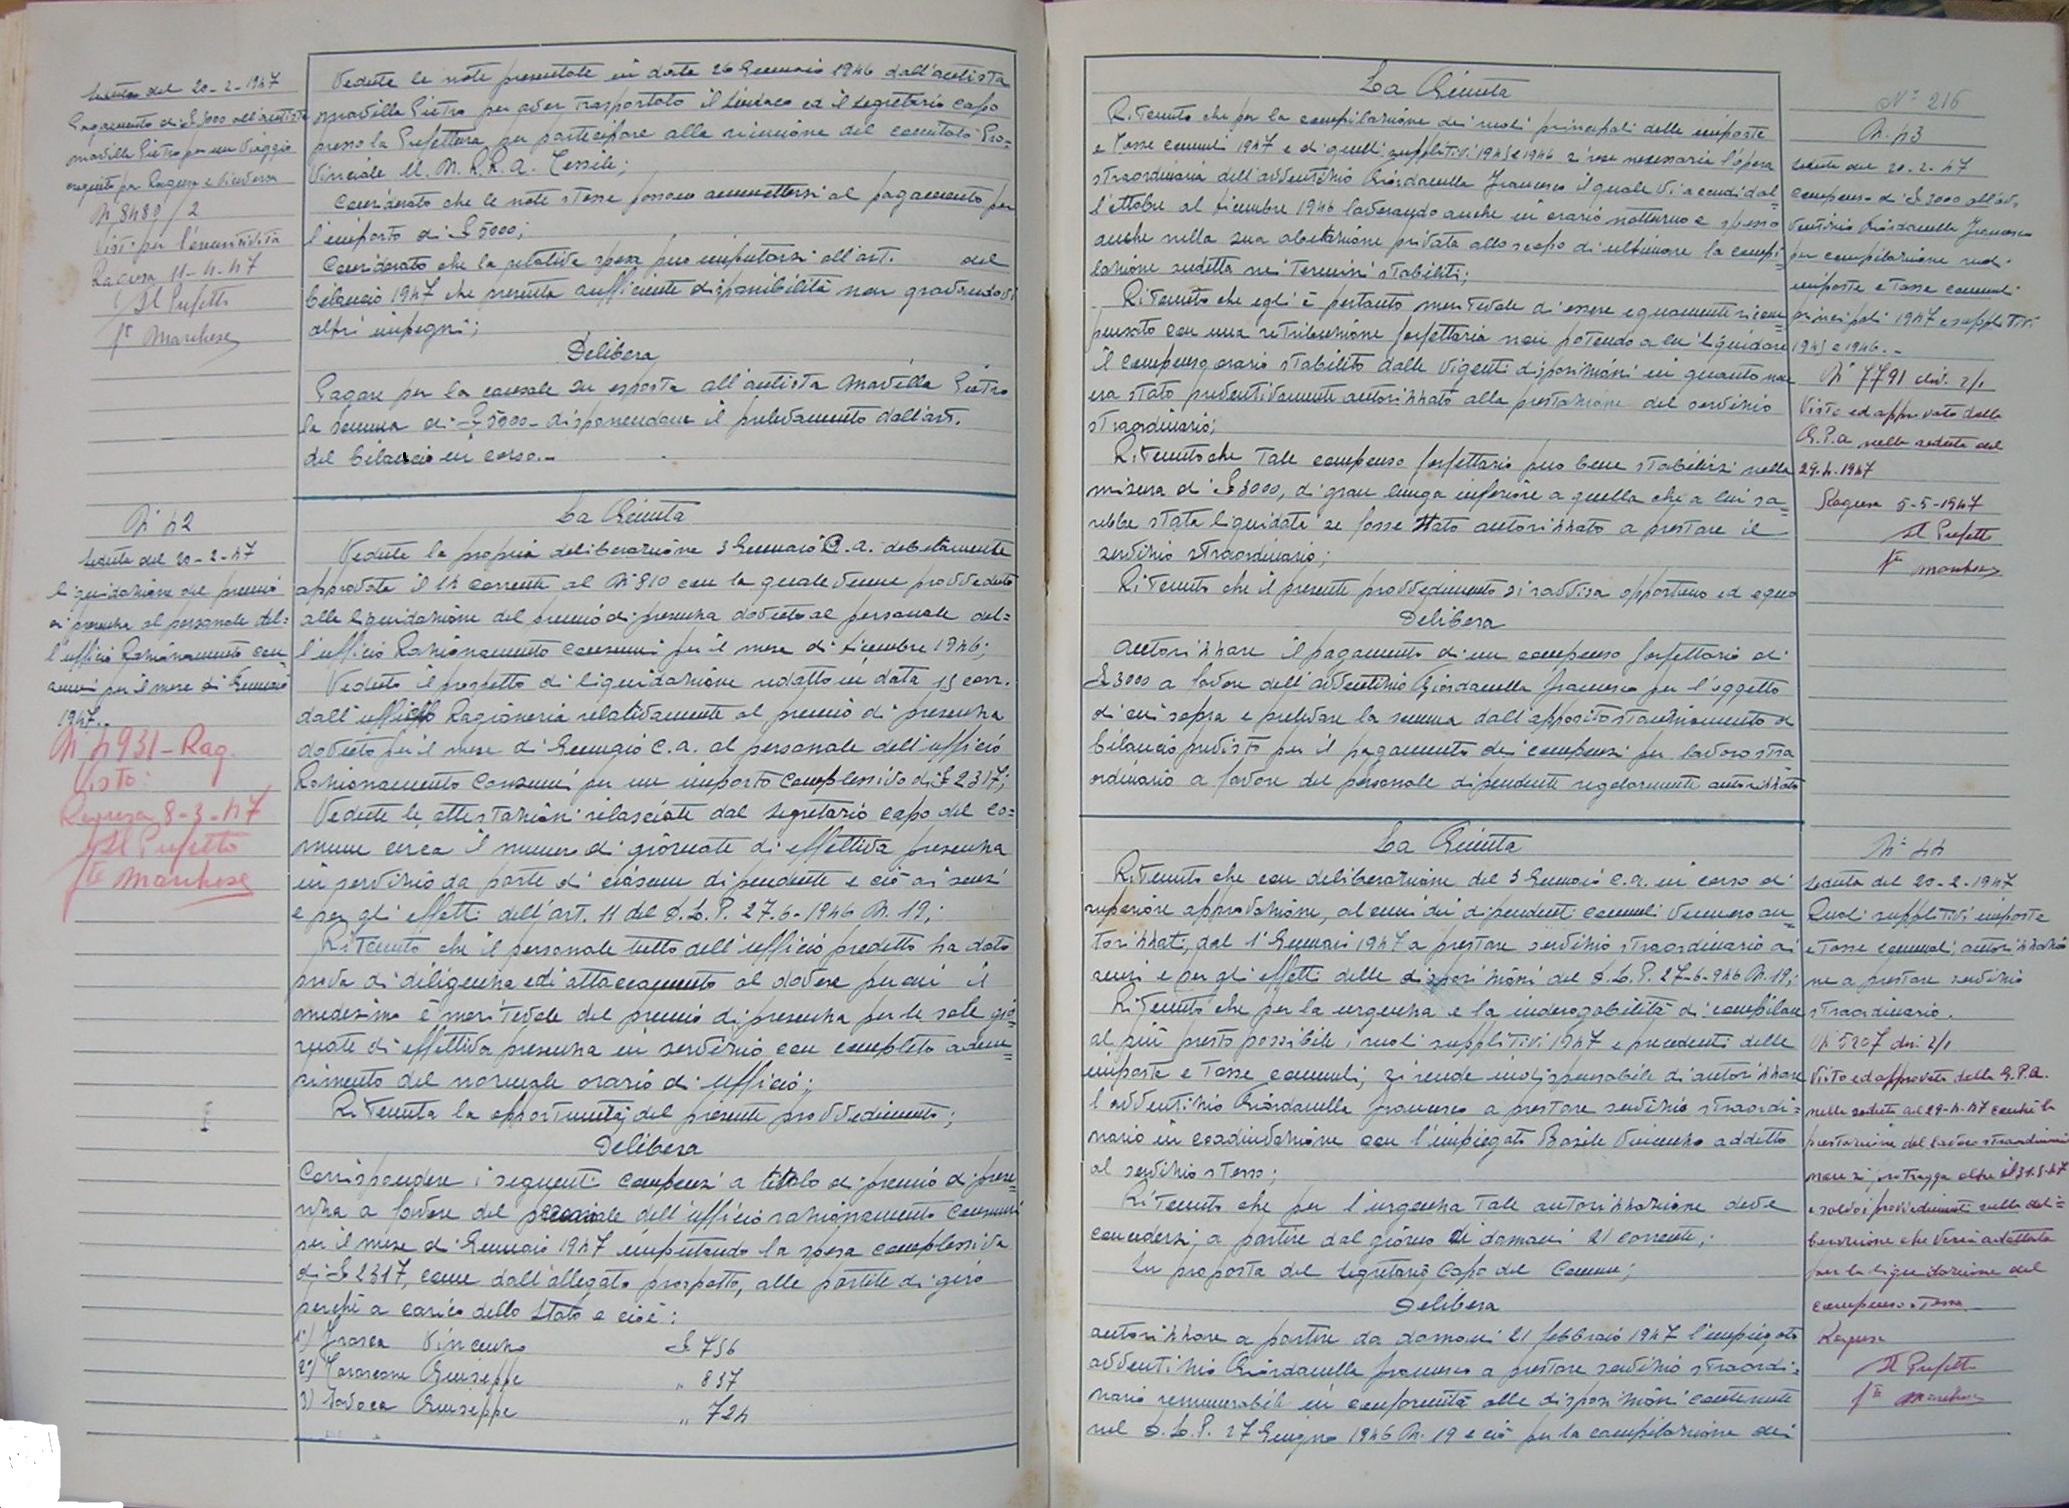 Seduta del 20-2-1947
Pagamento di £ 5000 all'autista
Mavilla Pietro per un viaggio
eseguito per Ragusa e viceversa
N 8480/2
Visto per l'esecutività
Ragusa 11-4-47
Il Prefetto
f° Marchese
Vedute le note presentate in data 26 Gennaio 1946 dall'autista
Mavilla Pietro per aver trasportato il Sindaco ed il Segretario capo
presso la Prefettura per partecipare alla riunione del comitato Pro=
vinciale U.N.R.R.A. Tessile;
Considerato che le note stesse possono ammettersi al pagamento per
l'importo di £ 5000;
Considerato che la relativa spesa può imputarsi all'art. del
bilancio 1947 che presenta sufficiente disponibilità non gravandovi
altri impegni;
Delibera
Pagare per la causale su esposta all'autista Mavilla Pietro
la somma di £ 5000- disponendone il prelevamento dall'art.
del bilancio in corso.-
N° 42
Seduta del 20-2-47
Liquidazione del premio
di presenza al personale del=
l'ufficio Razionamento con=
sumi per il mese di Gennaio
1947.-
N 4931-Rag.
Visto:
Ragusa, 8-3-47
Il Prefetto
fto Marchese
La Giunta
Veduta la propria deliberazione 3 Gennaio c.a. debitamente
approvata il 14 corrente al N° 810 con la quale venne provveduto
alla liquidazione del premio di presenza dovuto al personale del=
l'ufficio Razionamento consumi per il mese di Dicembre 1946;
Veduto il prospetto di liquidazione redatto in data 15 corr.
dall'ufficio Ragioneria relativamente al premio di presenza
dovuto per il mese di Gennaio c.a. al personale dell'ufficio
Razionamento Consumi per un importo complessivo di £ 2317;
Vedute le attestazioni rilasciate dal Segretario capo del co=
mune circa il numero di giornate di effettiva presenza
in servizio da parte di ciascun dipendente e ciò ai sensi
e per gli effetti dell'art. 11 del D.L.P. 27-6-1946 N. 19;
Ritenuto che il personale tutto dell'ufficio predetto ha dato
prova di diligenza ed attaccamento al dovere per cui il
medesimo è meritevole del premio di presenza per le sole gior=
nate di effettiva presenza in servizio con completo adem=
pimento del normale orario di ufficio;
Ritenuta la opportunità del presente provvedimento;
Delibera
Corrispondere i seguenti compensi a titolo di premio di prese=
nza a favore del personale dell'ufficio razionamento consumi
per il mese di Gennaio 1947 imputando la spesa complessiva
di £ 2317, come dall'allegato prospetto, alle partite di giro
perché a carico dello Stato e cioè:
1°) Frasca Vincenzo £ 756
2°) Tarascone Giuseppe " 837
3) Giuseppe " 724
La Giunta
Ritenuto che per la compilazione dei ruoli principali delle imposte
e tasse comunali 1947 e di quelli suppletivi 1945 e 1946 si rese necessaria l'opera
straordinaria dell'avventizio Giordanella Francesco il quale vi accudì dal=
l'ottobre al dicembre 1946 lavorando anche in orario notturno e spesso
anche nella sua abitazione privata allo scopo di ultimare la compi=
lazione suddetta nei termini stabiliti;
Ritenuto che egli è pertanto meritevole di essere equamente ricom=
pensato con una retribuzione forfettaria non potendo a lui liquidare
il compenso orario stabilito dalle vigenti disposizioni in quanto non
era stato preventivamente autorizzato alla prestazione del servizio
straordinario;
Ritenuto che tale compenso forfettario può bene stabilirsi nella
misura di £ 3000, di gran lunga inferiore a quella che a lui sa=
rebbe stata liquidata se fosse stato autorizzato a prestare il
servizio straordinario;
Ritenuto che il presente provvedimento si ravvisa opportuno ed equo
Delibera
Autorizzare il pagamento di un compenso forfettario di
£ 3000 a favore dell'avventizio Giordanella Francesco per l'oggetto
di cui sopra e prelevare la somma dall'apposito stanziamento di
bilancio previsto per il pagamento dei compensi per lavoro stra
ordinario a favore del personale dipendente regolarmente autorizzato
N° 216
N. 43
Seduta del 20-2-47
Compenso di £ 3000 all'av=
ventizio Giordanella Francesco
per compilazione ruoli
imposte e tasse comunali
principali 1947 e suppletivi
1945 e 1946.-
N° 7791 div. 2/1
Visto ed approvato dalla
G.P.A. nella seduta del
29-4-1947
Ragusa 5-5-1947
Il Prefetto
fto Marchese
La Giunta
Ritenuto che con deliberazione del 3 Gennaio c.a. in corso di
superiore approvazione, alcuni dei dipendenti comunali vennero au=
torizzati, dal 1° Gennaio 1947 a prestare servizio straordinario ai
sensi e per gli effetti delle disposizioni del D.L.P. 27-6-946 N. 19;
Ritenuto che per la urgenza e la inderogabilità di compilare
al più presto possibile i ruoli suppletivi 1947 e precedenti delle
imposte e tasse comunali, si rende indispensabile di autorizzare
l'avventizio Giordanella Francesco a prestare servizio straordi=
nario in coadiuvazione con l'impiegato Basile Vincenzo addetto
al servizio stesso;
Ritenuto che per l'urgenza tale autorizzazione deve
concedersi, a partire dal giorno di domani 21 corrente;
Su proposta del Segretario Capo del Comune;
Delibera
autorizzare a partire da domani 21 febbraio 1947 l'impiegato
avventizio Giordanella Francesco a prestare servizio straordi=
nario remunerabile in conformità alle disposizioni contenute
nel D.L.P. 27 Giugno 1946 N. 19 e ciò per la compilazione dei
N° 44
Seduta del 20-2-1947
Ruoli suppletivi imposte
e tasse comunali, autorizzazio
ne a prestare servizio
straordinario.
N 5207 div 2/1
Visto ed approvato dalla G.P.A.
nella seduta del 29-4-47 perché la
prestazione del lavoro straordinario
non si protragga oltre il 31-5-47
e salvo i provvedimenti sulla deli=
berazione che verrà adottata
per la liquidazione del
compenso stesso
Ragusa
Il Prefetto
fto Marchese